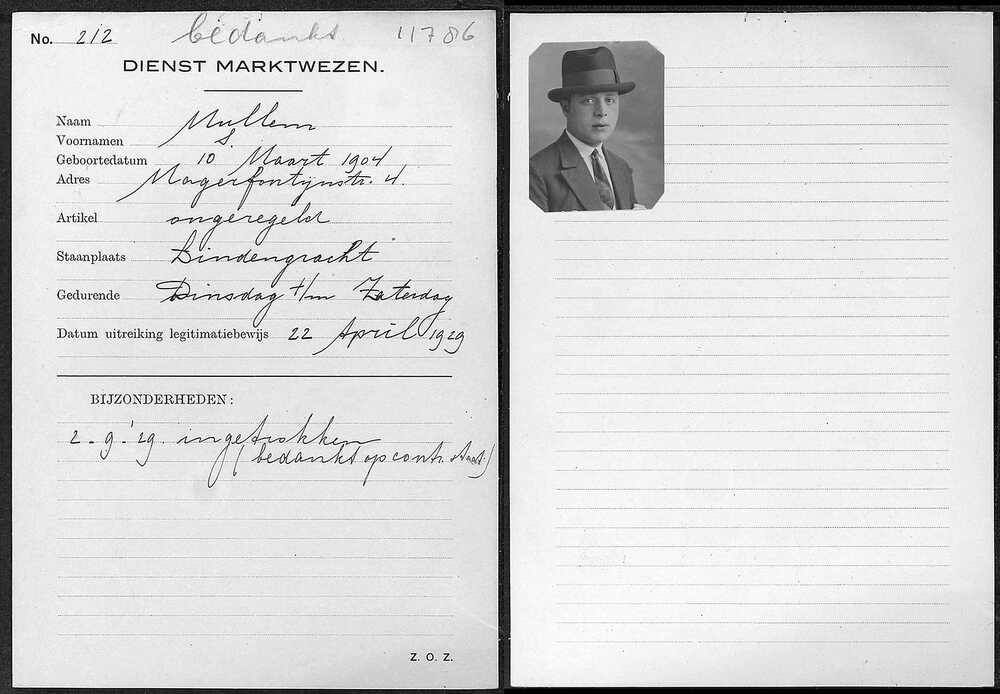 No. 212 bedankt 11786
DIENST MARKTWEZEN.
Naam Mullem
Voornamen S.
Geboortedatum 10 Maart 1904
Adres Magerfontijnstr. 4.
Artikel ongeregeld
Staanplaats Lindengracht
Gedurende Dinsdag t/m Zaterdag
Datum uitreiking legitimatiebewijs 22 April 1929
BIJZONDERHEDEN:
2-9-'29 ingetrokken
(bedankt op contr. staat)
Z. O. Z.